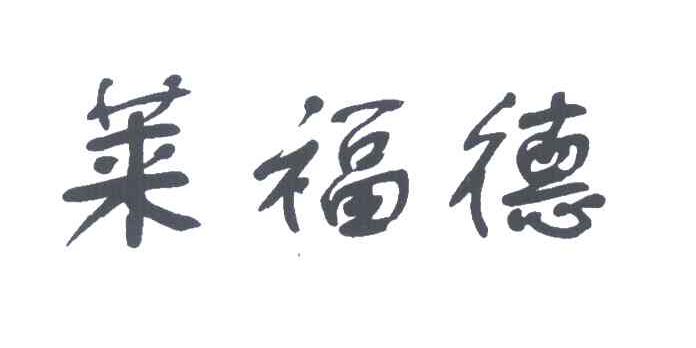 莱福德